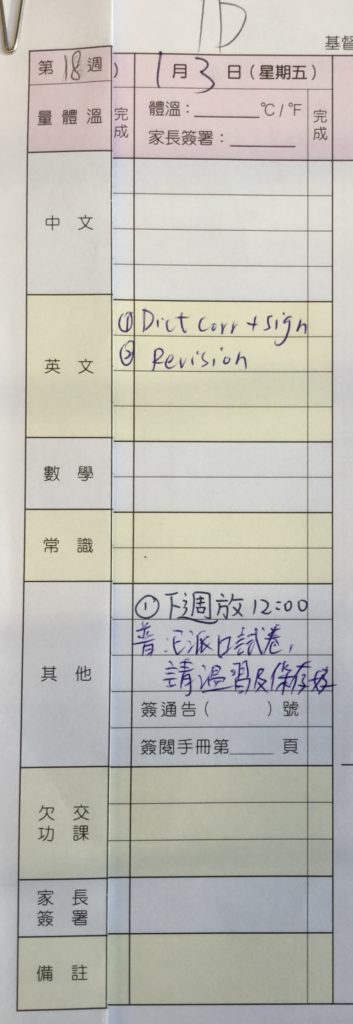 1D
基督
第18週 ) 1月3日(星期五)
量體溫 完成 體溫：________℃/℉ 完成
家長簽署：________
中文
英文
① Dict Corr + sign
② Revision
數學
常識
其他
① 下週放12:00
普：已派口試卷，
請溫習及保存好
簽通告( )號
簽閱手冊第____頁
欠交功課
家長簽署
備註